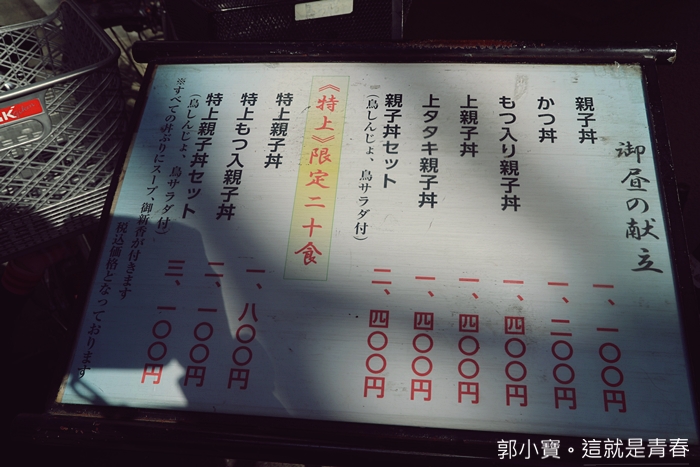 御昼の献立
親子丼 一、一〇〇円
かつ丼 一、二〇〇円
もつ入り親子丼 一、四〇〇円
上親子丼 一、四〇〇円
上タタキ親子丼 一、四〇〇円
親子丼セット 二、四〇〇円
(鳥しんじょ、鳥サラダ付)
《特上》限定二十食
特上親子丼 一、八〇〇円
特上もつ入親子丼 二、一〇〇円
特上親子丼セット 三、一〇〇円
(鳥しんじょ、鳥サラダ付)
※すべての丼ぶりにスープ、御新香が付きます
税込価格となっております
郭小寶。這就是青春